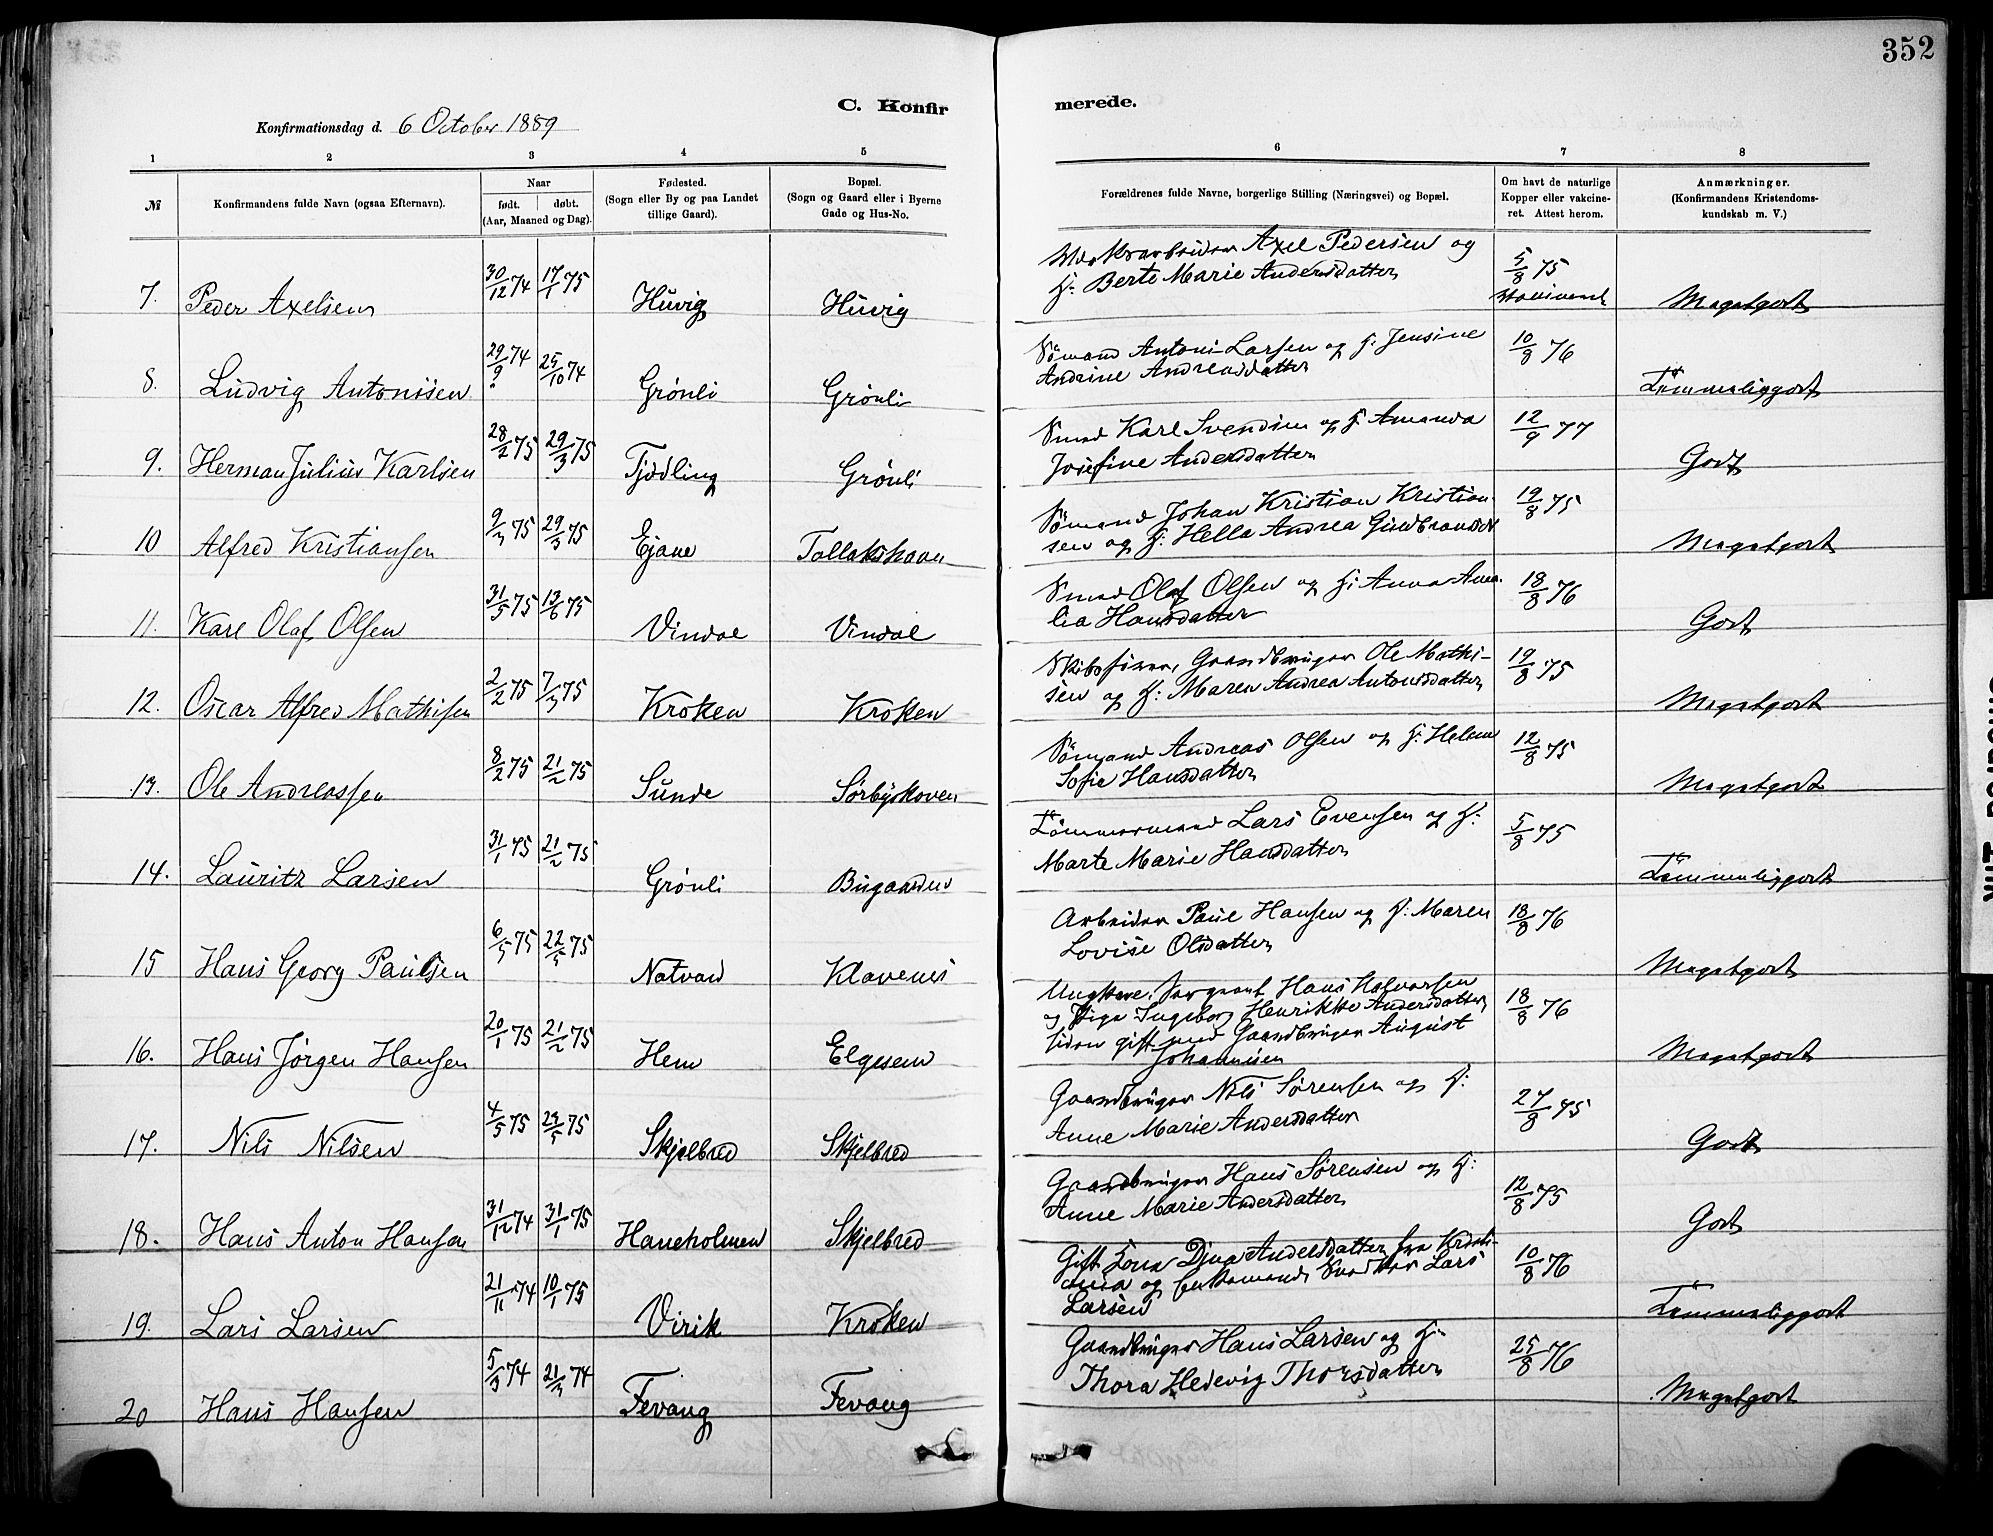 352
C. Konfirmerede.
Konfirmationsdag d. 6 October 1889
1 2 3 4 5 6 7 8
№ | Konfirmandens fulde Navn (ogsaa Efternavn). | Naar født. døbt. (Aar, Maaned og Dag). | Fødested. (Sogn eller By og paa Landet tillige Gaard). | Bopæl. (Sogn og Gaard eller i Byerne Gade og Hus-No. | Forældrenes fulde Navne, borgerlige Stilling (Næringsvei) og Bopæl. | Om havt de naturlige Kopper eller vakcineret. Attest herom. | Anmærkninger. (Konfirmandens Kristendomskundskab m. V.)
7. Peder Axelsen 30/12 74 17/1 75 Huvig Huvig Axel Pedersen og F: Berte Marie Andersdatter 5/8 75 Megetgodt
8. Ludvig Antonisen 29/9 74 25/10 74 Grönli Grönli Sömand Antoni Larsen og F: Jensine Andrine Andreasdatter 10/8 76 Temmeliggodt
9. Herman Julius Karlsen 28/2 75 29/3 75 Tjödling Grönli Smed Karl Svendsen og F: Amanda Josefine Andersdatter 12/9 77 Godt
10 Alfred Kristiansen 9/3 75 29/3 75 Ejane Tallakshavn Sömand Johan Kristian Kristiansen og F: Hella Andrea Gundbrandsd 19/8 75 Megetgodt
11. Karl Olaf Olsen 31/5 75 13/6 75 Vindal Vindal Smed Olaf Olsen og F: Anna Amalia Hansdatter 18/8 76 Godt
12. Oscar Alfred Mathisen 2/2 75 7/3 75 Kroken Kroken Skibsförer, Gaardbruger Ole Mathisen og F: Maren Andrea Antonsdatter 19/8 75 Megetgodt
13. Ole Andreassen 8/2 75 21/2 75 Sunde Sörbyskoven Sömand Andreas Olsen og F: Helene Sofie Hansdatter 12/8 75 Megetgodt
14. Lauritz Larsen 31/1 75 21/2 75 Grönli Bugaarden Tömmermand Lars Evensen og F: Marte Marie Hansdatter 5/8 75 Temmeliggodt
15 Hans Georg Paulsen 6/5 75 22/5 75 Natvad Klavenes Arbeider Paul Hansen og F: Maren Lovise Olsdatter 18/8 76 Megetgodt
16. Hans Jörgen Hansen 20/1 75 21/2 75 Hem Elgesem Ungkarl, Sergeant Hans Halvorsen og Pige Ingeborg Henrikke Andersdatter siden gift med Gaardbruger August Johannesen 18/8 76 Megetgodt
17. Nils Nilsen 4/5 75 29/5 75 Skjelbred Skjelbred Gaardbruger Nils Sörensen og F: Anne Marie Andersdatter 27/8 75 Godt
18. Hans Anton Hansen 31/12 74 31/1 75 Haneholmen Skjelbred Gaardbruger Hans Sörensen og F: Anne Marie Andersdatter 12/8 75 Godt
19. Lars Larsen 21/11 74 10/1 75 Virik Kroken Gift Kone Dina Andersdatter fra Kristiania og Enkemand Snedker Lars Larsen 10/8 76 Temmeliggodt
20 Hans Hansen 5/3 74 21/3 74 Fevang Fevang Gaardbruger Hans Larsen og F: Thora Hedevig Thorsdatter 25/8 76 Megetgodt